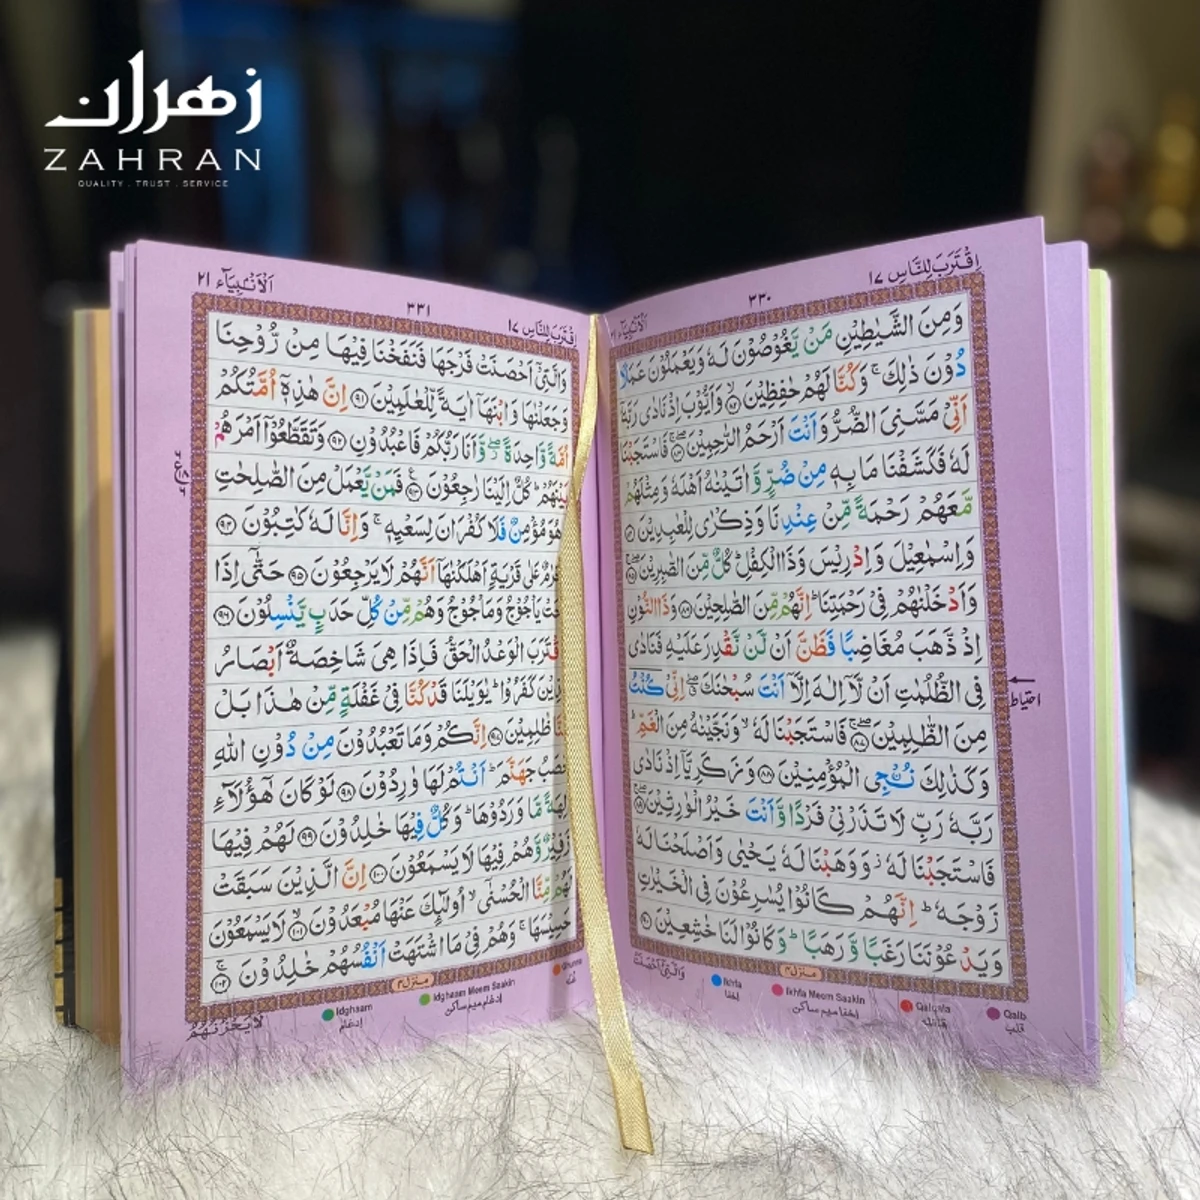 زهران
ZAHRAN
QUALITY . TRUST . SERVICE
اِقْتَرَبَ لِلنَّاسِ ١٧
٣٣٠
اَلْاَنْۢبِيَآء
وَمِنَ الشَّيٰطِيْنِ مَنْ يَّغُوْصُوْنَ لَهٗ وَيَعْمَلُوْنَ عَمَلًا
دُوْنَ ذٰلِكَ ۚ وَكُنَّا لَهُمْ حٰفِظِيْنَ ۙ‏﴿٨٢﴾ وَاَيُّوْبَ اِذْ نَادٰى رَبَّهٗٓ
اَنِّىْ مَسَّنِىَ الضُّرُّ وَاَنْتَ اَرْحَمُ الرّٰحِمِيْنَ ۖۚ‏﴿٨٣﴾ فَاسْتَجَبْنَا
لَهٗ فَكَشَفْنَا مَا بِهٖ مِنْ ضُرٍّ وَّاٰتَيْنٰهُ اَهْلَهٗ وَمِثْلَهُمْ
مَّعَهُمْ رَحْمَةً مِّنْ عِنْدِنَا وَذِكْرٰى لِلْعٰبِدِيْنَ ‏﴿٨٤﴾
وَاِسْمٰعِيْلَ وَاِدْرِيْسَ وَذَا الْكِفْلِ ؕ كُلٌّ مِّنَ الصّٰبِرِيْنَ ۖۚ‏﴿٨٥﴾
وَاَدْخَلْنٰهُمْ فِىْ رَحْمَتِنَا ؕ اِنَّهُمْ مِّنَ الصّٰلِحِيْنَ ‏﴿٨٦﴾ وَذَا النُّوْنِ
اِذْ ذَّهَبَ مُغَاضِبًا فَظَنَّ اَنْ لَّنْ نَّقْدِرَ عَلَيْهِ فَنَادٰى
فِى الظُّلُمٰتِ اَنْ لَّاۤ اِلٰهَ اِلَّاۤ اَنْتَ سُبْحٰنَكَ ۖۗ اِنِّىْ كُنْتُ
مِنَ الظّٰلِمِيْنَ ۖۚ‏﴿٨٧﴾ فَاسْتَجَبْنَا لَهٗ ۙ وَنَجَّيْنٰهُ مِنَ الْغَمِّ ؕ
وَكَذٰلِكَ نُـنْجِى الْمُؤْمِنِيْنَ ‏﴿٨٨﴾ وَزَكَرِيَّاۤ اِذْ نَادٰى
رَبَّهٗ رَبِّ لَا تَذَرْنِىْ فَرْدًا وَّاَنْتَ خَيْرُ الْوٰرِثِيْنَ ۖۚ‏﴿٨٩﴾
فَاسْتَجَبْنَا لَهٗ ۚ وَوَهَبْنَا لَهٗ يَحْيٰى وَاَصْلَحْنَا لَهٗ
زَوْجَهٗ ؕ اِنَّهُمْ كَانُوْا يُسٰرِعُوْنَ فِى الْخَيْرٰتِ
وَيَدْعُوْنَنَا رَغَبًا وَّرَهَبًا ؕ وَكَانُوْا لَنَا خٰشِعِيْنَ ‏﴿٩٠﴾
احتياط
منزل ٤
وَالَّتِىْۤ اَحْصَنَتْ
Ikhfa
اخفا
Ikhfa Meem Saakin
اخفا ميم ساكن
Qalqala
قلقله
Qalb
قلب
اِقْتَرَبَ لِلنَّاسِ ١٧
٣٣١
اَلْاَنْۢبِيَآء ٢١
وَالَّتِىْۤ اَحْصَنَتْ فَرْجَهَا فَنَفَخْنَا فِيْهَا مِنْ رُّوْحِنَا
وَجَعَلْنٰهَا وَابْنَهَاۤ اٰيَةً لِّلْعٰلَمِيْنَ ‏﴿٩١﴾ اِنَّ هٰذِهٖۤ اُمَّتُكُمْ
اُمَّةً وَّاحِدَةً ۖ وَّاَنَا رَبُّكُمْ فَاعْبُدُوْنِ ‏﴿٩٢﴾ وَتَقَطَّعُوْۤا اَمْرَهُمْ
بَيْنَهُمْ ؕ كُلٌّ اِلَيْنَا رٰجِعُوْنَ ‏﴿٩٣﴾ فَمَنْ يَّعْمَلْ مِنَ الصّٰلِحٰتِ
وَهُوَ مُؤْمِنٌ فَلَا كُفْرَانَ لِسَعْيِهٖ ۚ وَاِنَّا لَهٗ كٰتِبُوْنَ ‏﴿٩٤﴾
عَلٰى قَرْيَةٍ اَهْلَكْنٰهَاۤ اَنَّهُمْ لَا يَرْجِعُوْنَ ‏﴿٩٥﴾ حَتّٰٓى اِذَا
يَاْجُوْجُ وَمَاْجُوْجُ وَهُمْ مِّنْ كُلِّ حَدَبٍ يَّنْسِلُوْنَ ‏﴿٩٦﴾
الْوَعْدُ الْحَقُّ فَاِذَا هِىَ شَاخِصَةٌ اَبْصَارُ
كَفَرُوْا ؕ يٰوَيْلَنَا قَدْ كُنَّا فِىْ غَفْلَةٍ مِّنْ هٰذَا بَلْ
ظٰلِمِيْنَ ‏﴿٩٧﴾ اِنَّكُمْ وَمَا تَعْبُدُوْنَ مِنْ دُوْنِ اللّٰهِ
جَهَنَّمَ ؕ اَنْتُمْ لَهَا وٰرِدُوْنَ ‏﴿٩٨﴾ لَوْ كَانَ هٰٓؤُلَاۤءِ
مَّا وَرَدُوْهَا ؕ وَكُلٌّ فِيْهَا خٰلِدُوْنَ ‏﴿٩٩﴾ لَهُمْ فِيْهَا
زَفِيْرٌ وَّهُمْ فِيْهَا لَا يَسْمَعُوْنَ ‏﴿١٠٠﴾ اِنَّ الَّذِيْنَ سَبَقَتْ
لَهُمْ مِّنَّا الْحُسْنٰٓى ۙ اُولٰٓٮِٕكَ عَنْهَا مُبْعَدُوْنَ ۙ‏﴿١٠١﴾ لَا يَسْمَعُوْنَ
حَسِيْسَهَا ۚ وَهُمْ فِىْ مَا اشْتَهَتْ اَنْفُسُهُمْ خٰلِدُوْنَ ۚ‏﴿١٠٢﴾
منزل ٤
لَا يَحْزُنُهُمُ
Idghaam
ادغام
Idghaam Meem Saakin
ادغام ميم ساكن
Ghunna
غنه